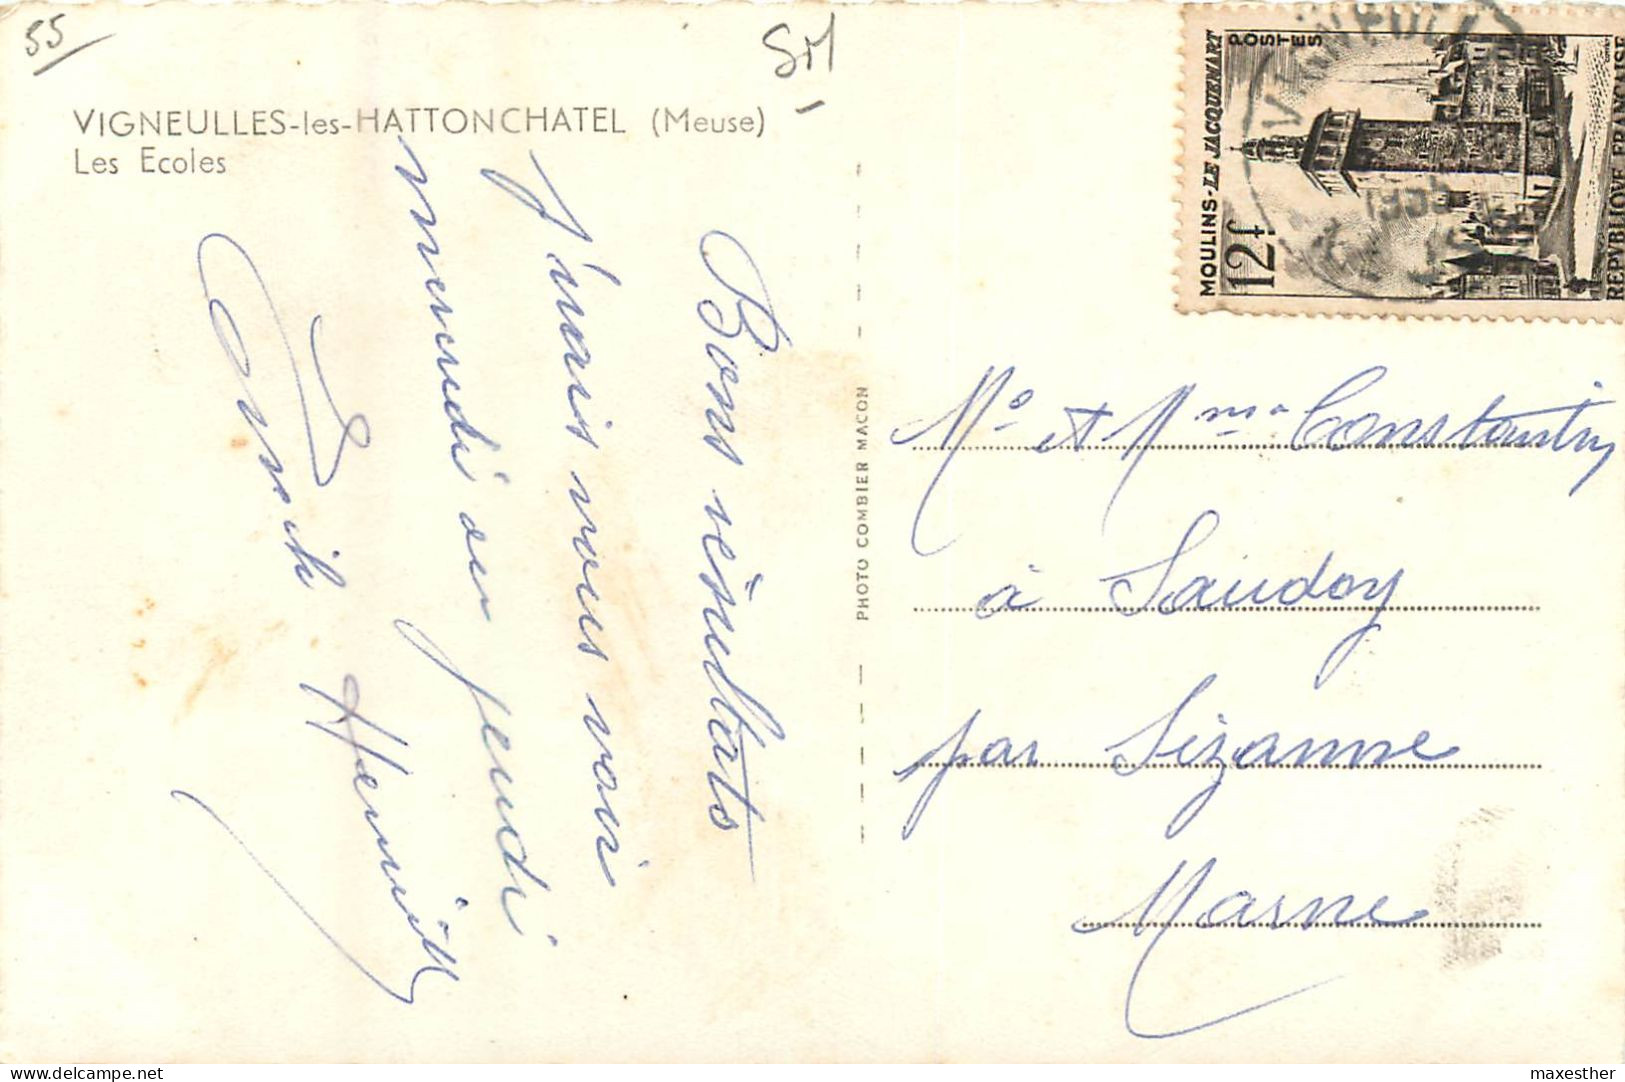 55
SM
VIGNEULLES-les-HATTONCHATEL (Meuse)
Les Ecoles
Bons résultats
J'irais vous voir
mercredi ou jeudi
PHOTO COMBIER MACON
MOULINS-LE JACQUEMART
POSTES
12f
REPVBLIQVE FRANÇAISE
VIGNEULL
Mr et Mme Constantin
à Saudoy
par Sézanne
Marne
maxesther